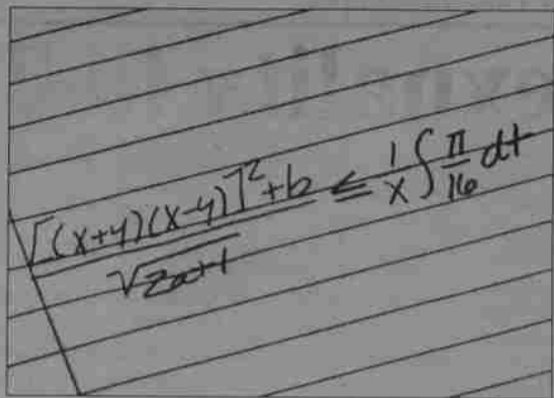 \frac{[(x+y)(x-y)]^2+b}{\sqrt{2a+1}} \leq \frac{1}{x} \int \frac{\pi}{16} dt